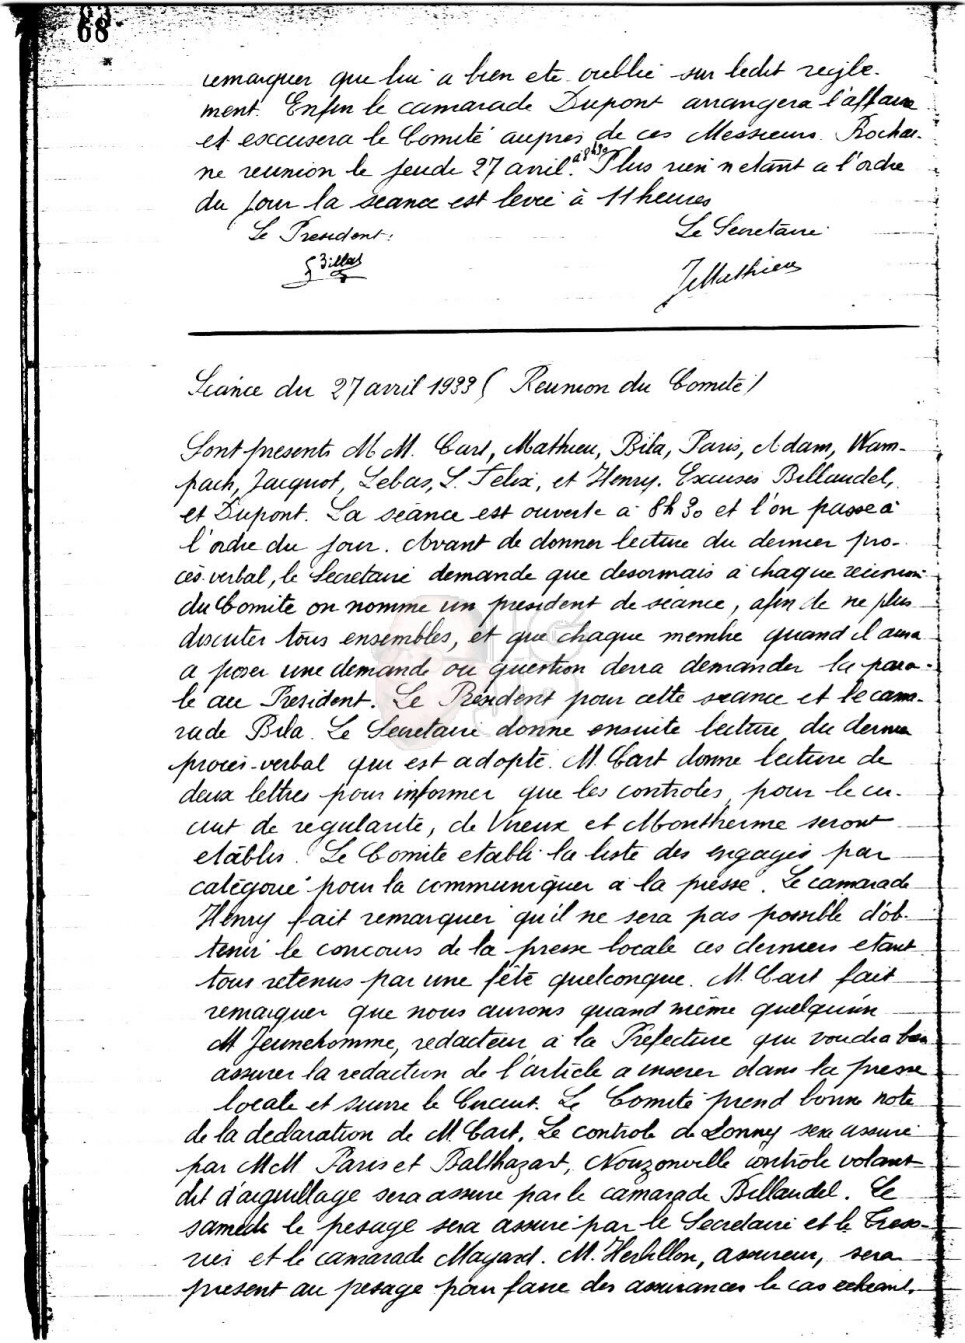 68
remarquer que lui a bien ete oublié sur ledit regle-
ment. Enfin le camarade Dupont arrangera l'affaire
et excusera le Comité aupres de ces Messieurs. Prochai-
ne reunion le jeudi 27 avril. à 8h30 Plus rien n'etant a l'ordre
du jour la séance est levée à 11 heures
Le President: Le Secretaire
JeMathieu
Séance du 27 avril 1933 (Reunion du Comité)
Sont presents M M. Cart, Mathieu, Bila, Paris, Adam, Wam-
pach, Jacquot, Lebas, S. Felix, et Henry. Excusés Billaudel,
et Dupont. La séance est ouverte à 8h30 et l'on passe à
l'ordre du jour. Avant de donner lecture du dernier pro-
cès-verbal, le Secretaire demande que desormais à chaque reunion
du Comité on nomme un president de séance, afin de ne plus
discuter tous ensembles, et que chaque membre quand il aura
a poser une demande ou question devra demander la paro-
le au President. Le President pour cette seance et le cama-
rade Bila. Le Secretaire donne ensuite lecture du dernier
procès-verbal qui est adopté. M. Cart donne lecture de
deux lettres pour informer que les contrôles, pour le cir-
cuit de regularité, de Vireux et Monthermé seront
etablis. Le Comité etabli la liste des engagés par
catégorie pour la communiquer à la presse. Le camarade
Henry fait remarquer qu'il ne sera pas possible d'ob-
tenir le concours de la presse locale ces derniers etant
tous retenus par une fête quelconque. M. Cart fait
remarquer que nous aurons quand même quelqu'un
M Jeunehomme, redacteur à la Préfecture qui voudra bien
assurer la redaction de l'article a inserer dans la presse
locale et suivre le Circuit. Le Comité prend bonne note
de la declaration de M. Cart. Le controle de Lonny sera assuré
par M M Paris et Balthazart, Nouzonville contrôle volant
dit d'aiguillage sera assuré par le camarade Billaudel. Le
samedi le pesage sera assuré par le Secretaire et le Treso-
rier et le camarade Mayard. M. Herbillon, assureur, sera
present au pesage pour faire des assurances le cas echéant.